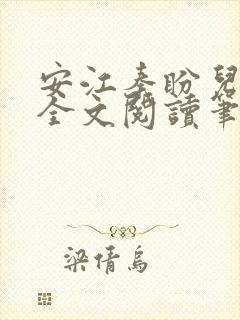 安江秦盼兒
全文閱讀筆
梁倩烏